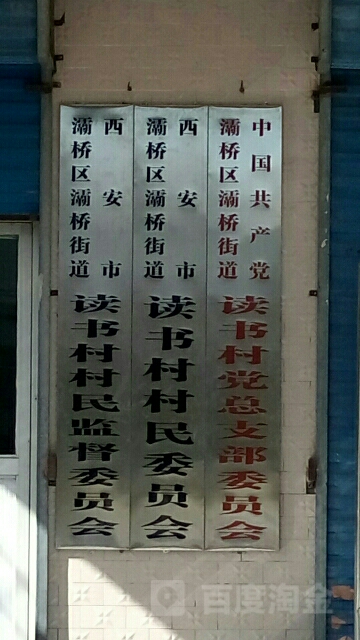 中国共产党
灞桥区灞桥街道
读书村党总支部委员会
西安市
灞桥区灞桥街道
读书村村民委员会
西安市
灞桥区灞桥街道
读书村村民监督委员会
百度淘金